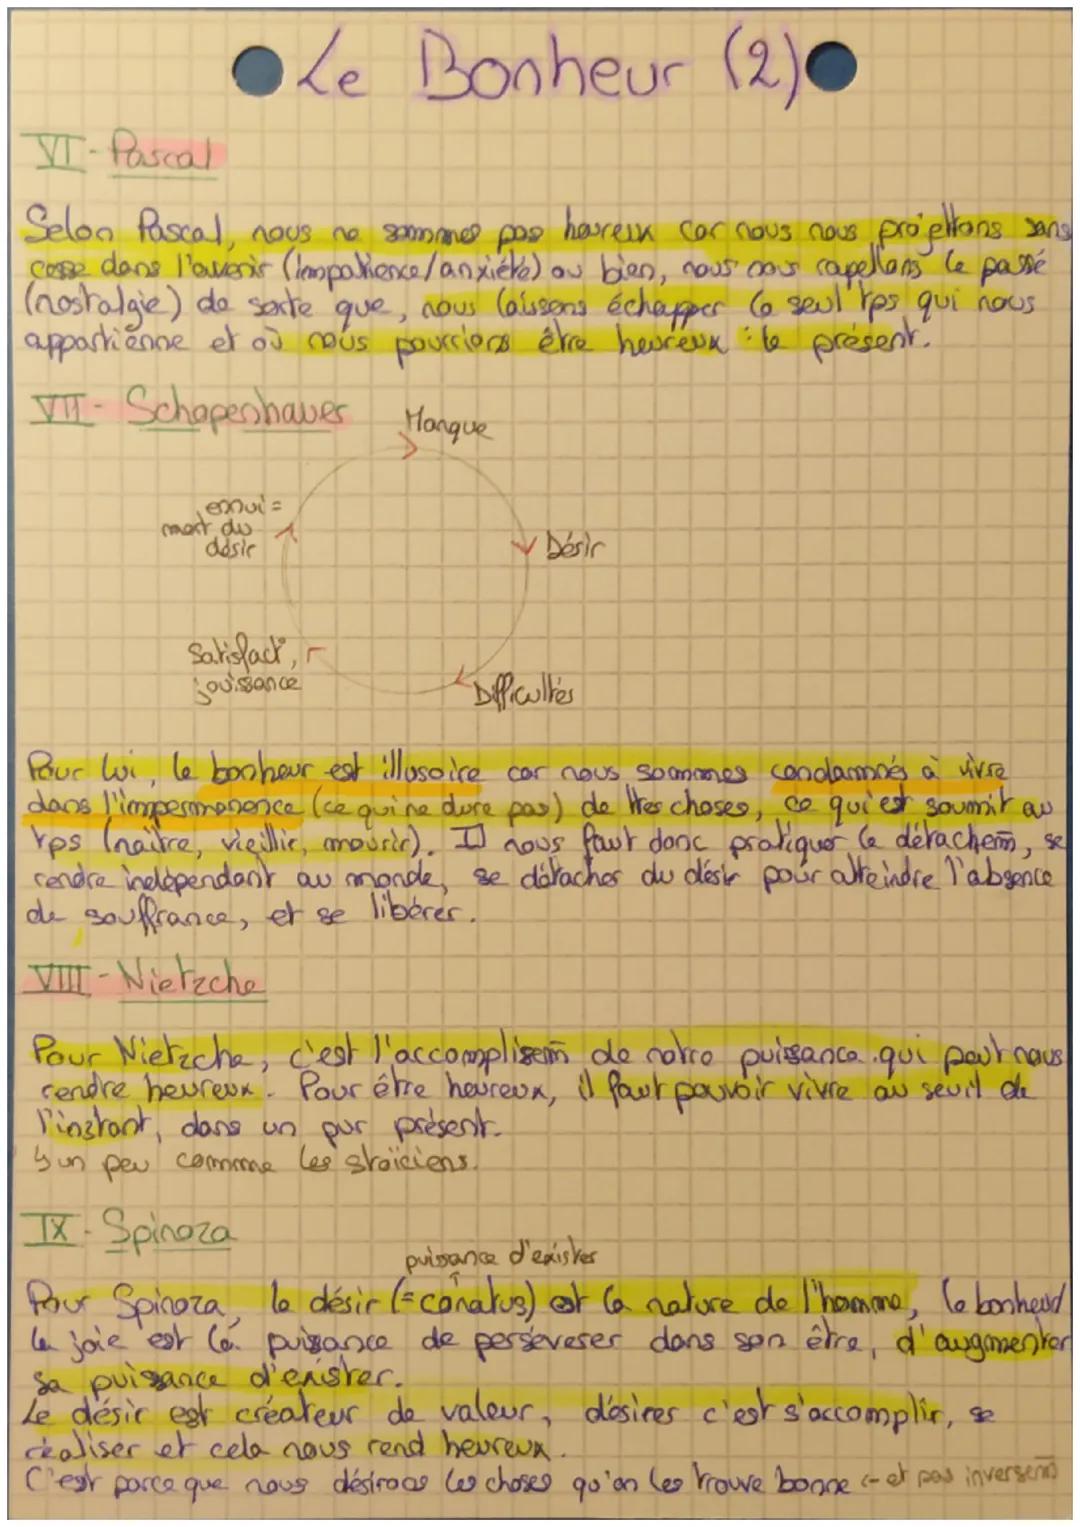 Le Bonheur (2)
VI - Pascal
Selon Pascal, nous ne sommes pas heureux car nous nous projettons sans
cesse dans l'avenir (impatience/anxiété) ou bien, nous nous rapellons le passé
(nostalgie) de sorte que, nous laissons échapper le seul tps qui nous
appartienne et où nous pourrions être heureux : le présent.
VII - Schopenhauer
Manque
ennui =
mort du
désir
Désir
Satisfact°,
jouissance
Difficultés
Pour lui, le bonheur est illusoire car nous sommes condamnés à vivre
dans l'impermanence (ce qui ne dure pas) de ttes choses, ce qui est soumit au
tps (naître, vieillir, mourir). Il nous faut donc pratiquer le détachem̄, se
rendre indépendant au monde, se détacher du désir pour atteindre l'absence
de souffrance, et se libérer.
VIII - Nietzche
Pour Nietzche, c'est l'accomplissem̄ de notre puissance qui peut nous
rendre heureux. Pour être heureux, il faut pouvoir vivre au seuil de
l'instant, dans un pur présent.
↳ un peu comme les stoïciens.
IX - Spinoza
puissance d'exister
↑
Pour Spinoza, le désir (= conatus) est la nature de l'homme, le bonheur/
la joie est la puissance de perséverer dans son être, d'augmenter
sa puissance d'exister.
Le désir est créateur de valeur, désirer c'est s'accomplir, se
réaliser et cela nous rend heureux.
C'est parce que nous désirons les choses qu'on les trouve bonne ← et pas inversem̄